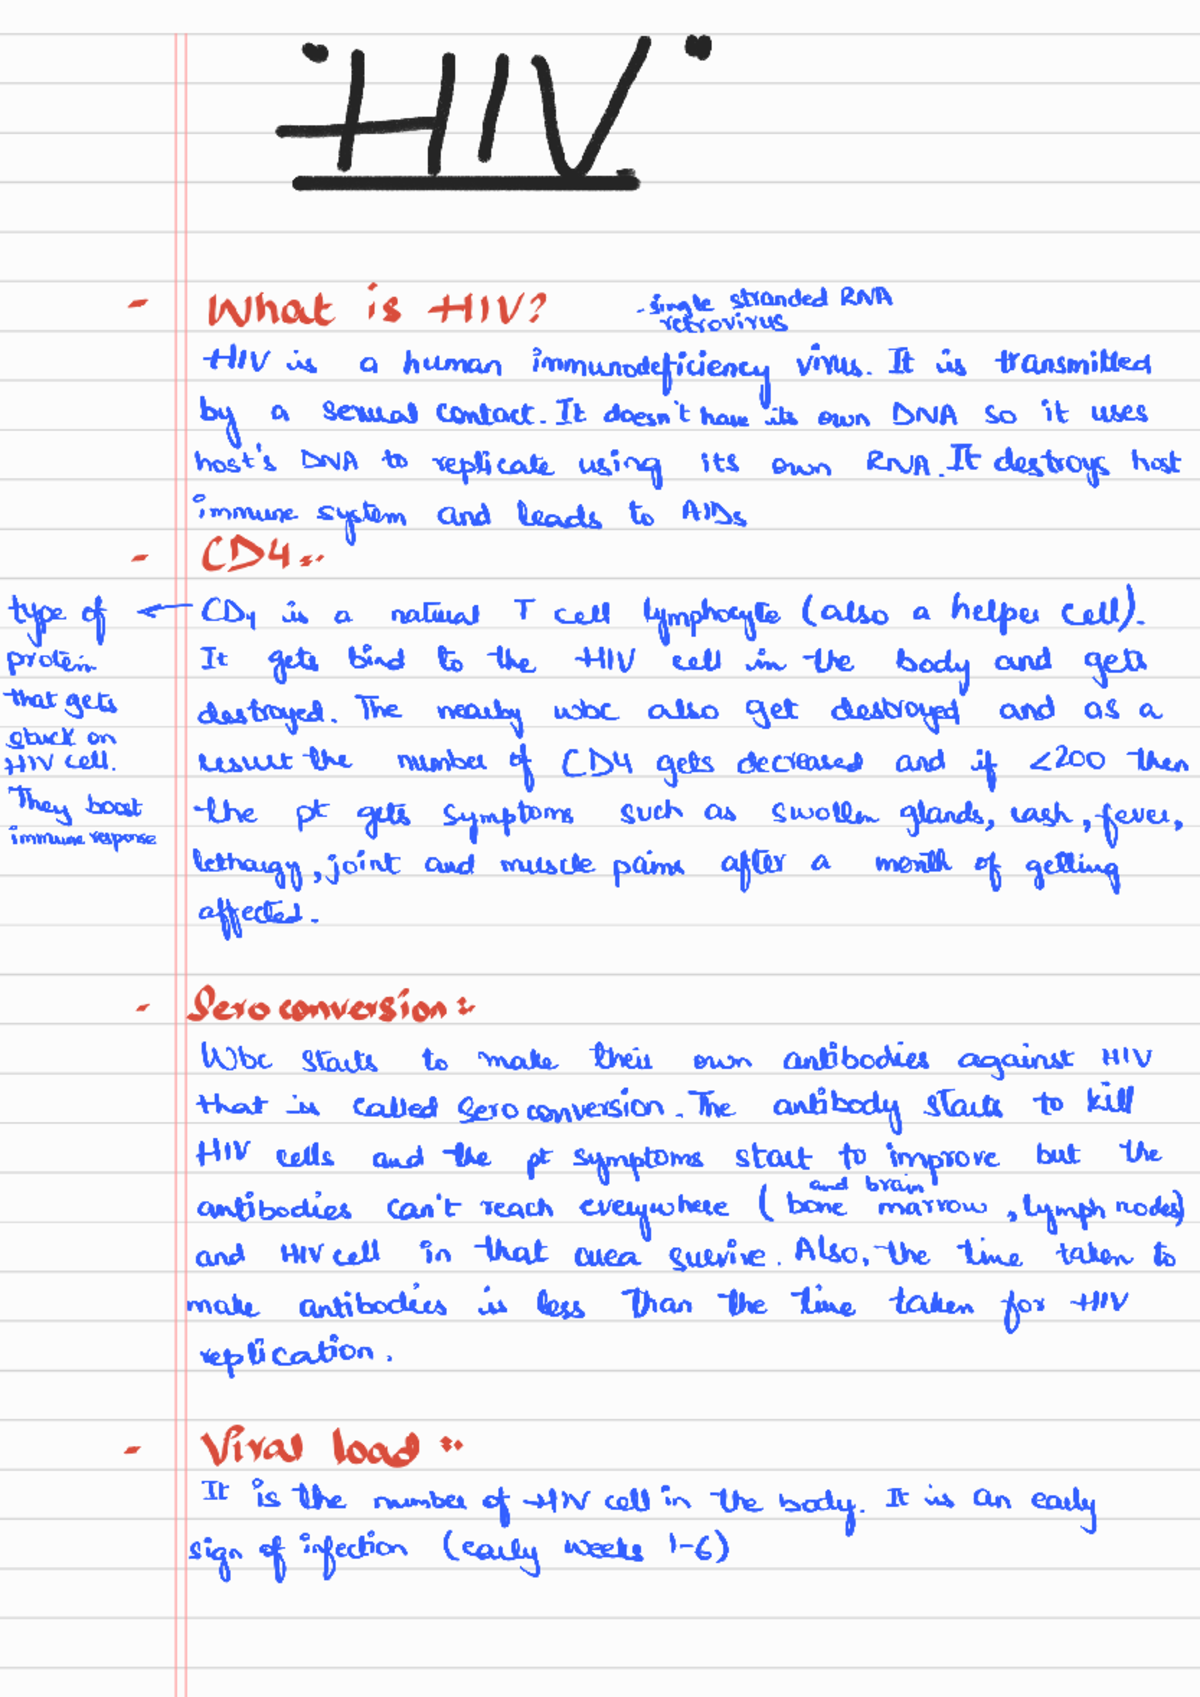 "HIV"
- What is HIV?
- single stranded RNA
retrovirus
HIV is a human immunodeficiency virus. It is transmitted
by a sexual contact. It doesn't have its own DNA so it uses
host's DNA to replicate using its own RNA. It destroys host
immune system and leads to AIDs
- CD4:-
CD4 is a natural T cell lymphocyte (also a helper cell).
It gets bind to the HIV cell in the body and gets
destroyed. The nearby wbc also get destroyed and as a
result the number of CD4 gets decreased and if <200 then
the pt gets symptoms such as swollen glands, rash, fever,
lethargy, joint and muscle pains after a month of getting
affected.
type of
protein
that gets
stuck on
HIV cell.
They boost
immune response
- Sero conversion:-
Wbc starts to make their own antibodies against HIV
that is called sero conversion. The antibody starts to kill
HIV cells and the pt symptoms start to improve but the
antibodies can't reach everywhere (bone marrow, lymph nodes)
and brain
and HIV cell in that area survive. Also, the time taken to
make antibodies is less than the time taken for HIV
replication.
- Viral load :-
It is the number of HIV cell in the body. It is an early
sign of infection (early weeks 1-6)